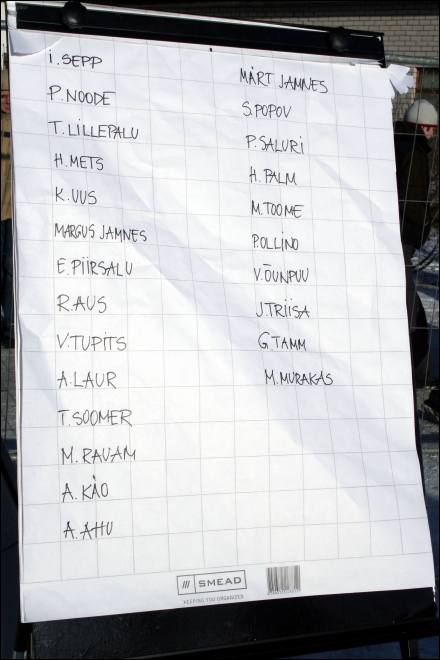 I. SEPP
P. NOODE
T. LILLEPALU
H. METS
K. UUS
MARGUS JAMNES
E. PIIRSALU
R. AUS
V. TUPITS
A. LAUR
T. SOOMER
M. RAVAM
A. KÄO
A. AHU
MÄRT JAMNES
S. POPOV
P. SALURI
H. PALM
M. TOOME
P. OLLINO
V. ÕUNPUU
J. TRIISA
G. TAMM
M. MURAKAS
SMEAD
KEEPING YOU ORGANIZED